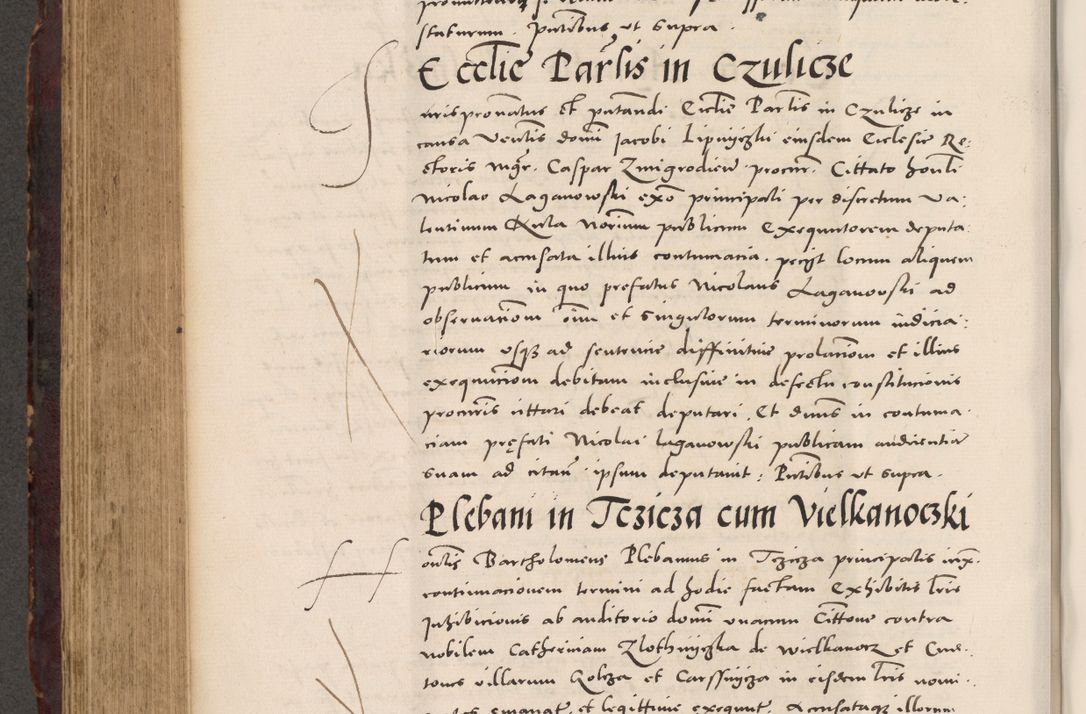 staturum . Pntibus ut supra .
Ecclie Parlis in Czulicze
Iurispronatus et pntandi Ecclie Parlis in Czulicze in
causa Venlis domi Jacobi Lipniczki eiusdem Ecclesie Re:
ctoris Mgr. Caspar Zmigrodien procur. Cittato honli
Nicolao Laganowski exo principali per discretum Va:
lentinum Notarium publicum Exequutorem deputa:
tum et accusata illius contumacia . peciit locum aliquem
publicum in quo prefatus Nicolaus Laganovski ad
observacionem oim et singulorum terminorum iudicia:
riorum usque ad sentencie diffinitive prolacionem et illius
exequucionem debitam inclusive in defectu constitucionis
procuris cittari debeat deputari . Et dnus in contuma:
ciam prefati Nicolai laganowski publicam audientia
suam ad citan ipsum deputavit : Pntibus ut supra .
Plebani in Tczicza cum Vielkanoczki
Bartholomeus Plebanus in Tczicza principalis
continuacionem termini ad hodie factam Exhibitis lris
Inhibicionis ab auditorio domi unacum Cittone contra
nobilem Catherinam Zlothniczka de Wielkanocz et
tones villarum Golcza et Carssnicza in eisdem lris nomi:
emanat. et legittime exequut. Accusataque illorum